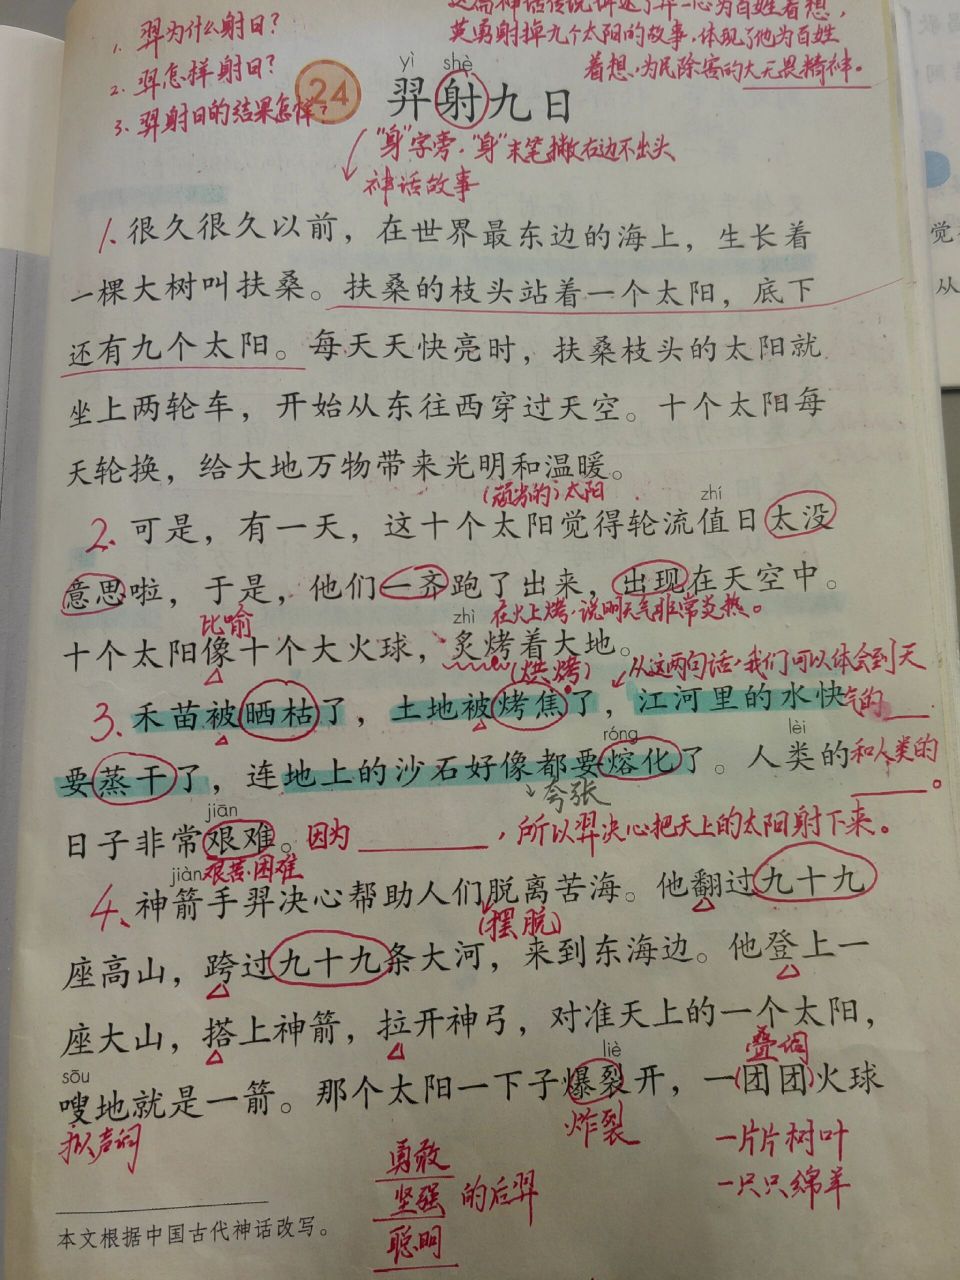 这篇神话传说讲述了羿一心为百姓着想，
英勇射掉九个太阳的故事，体现了他为百姓
着想，为民除害的大无畏精神。
1. 羿为什么射日？
2. 羿怎样射日？
3. 羿射日的结果怎样？
yì shè
24 羿射九日
"身"字旁，"身"末笔撇右边不出头
神话故事
1. 很久很久以前，在世界最东边的海上，生长着
一棵大树叫扶桑。扶桑的枝头站着一个太阳，底下
还有九个太阳。每天天快亮时，扶桑枝头的太阳就
坐上两轮车，开始从东往西穿过天空。十个太阳每
天轮换，给大地万物带来光明和温暖。
(顽劣的)太阳
zhí
2. 可是，有一天，这十个太阳觉得轮流值日太没
意思啦，于是，他们一齐跑了出来，出现在天空中。
比喻
zhì
在火上烤，说明天气非常炎热。
十个太阳像十个大火球，炙烤着大地。
(烘烤)
从这两句话，我们可以体会到天
3. 禾苗被晒枯了，土地被烤焦了，江河里的水快
气的
róng
lèi
要蒸干了，连地上的沙石好像都要熔化了。人类的
和人类的 。
夸张
jiān
日子非常艰难。
因为 ，所以羿决心把天上的太阳射下来。
jiàn
艰苦困难
4、神箭手羿决心帮助人们脱离苦海。他翻过九十九
(摆脱)
座高山，跨过九十九条大河，来到东海边。他登上一
座大山，搭上神箭，拉开神弓，对准天上的一个太阳，
sōu
liè
叠词
嗖地就是一箭。那个太阳一下子爆裂开，一(团团)火球
拟声词
炸裂
一片片树叶
一只只绵羊
勇敢
坚强 的后羿
聪明
本文根据中国古代神话改写。
觉
从